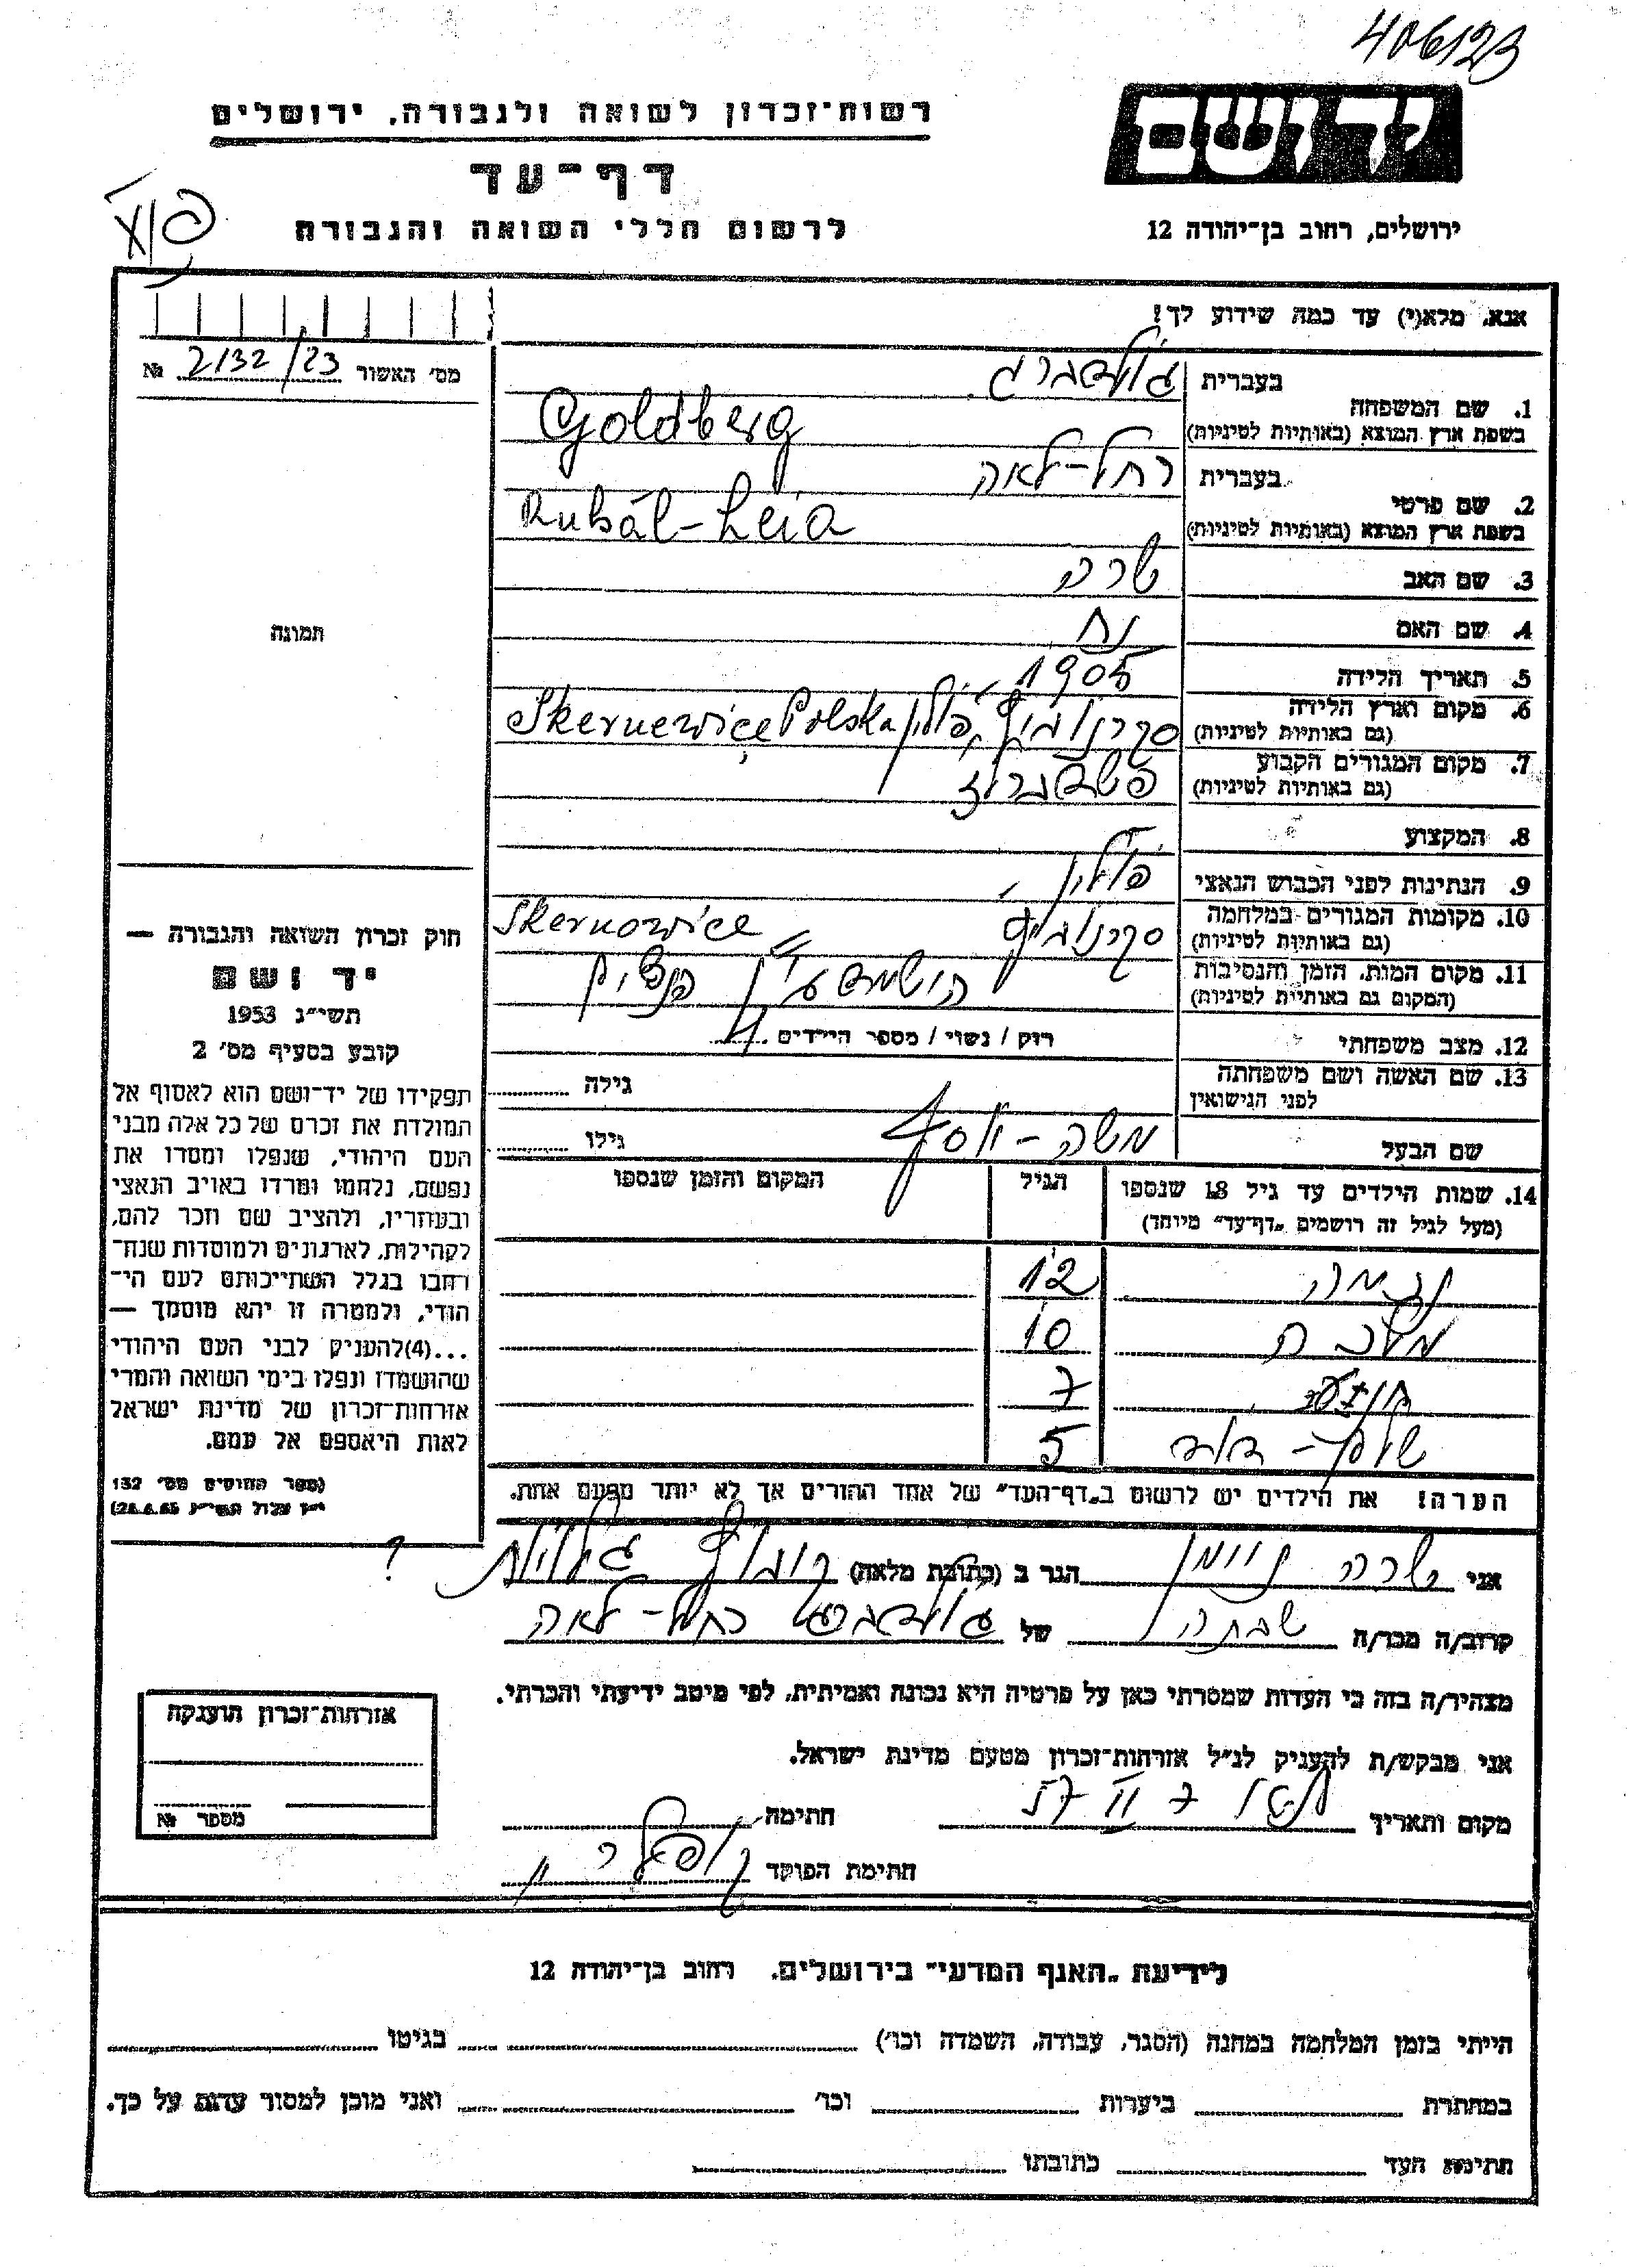 406123
יד ושם
רשות־זכרון לשואה ולגבורה, ירושלים
דף־עד
לרשום חללי השואה והגבורה
ירושלים, רחוב בן־יהודה 12
אנא, מלא(י) עד כמה שידוע לך!
מס' האשור 2132/23 №
תמונה
1. שם המשפחה
בעברית גולדברג
בשפת ארץ המוצא (באותיות לטיניות) Goldberg
2. שם פרטי
בעברית רחל-לאה
בשפת ארץ המוצא (באותיות לטיניות) Ruhál-Leia
3. שם האב שרה
4. שם האם נח
5. תאריך הלידה 1905
6. מקום וארץ הלידה סקרנוביץ, פולין Skernewice Polska
(גם באותיות לטיניות)
7. מקום המגורים הקבוע
(גם באותיות לטיניות)
8. המקצוע
9. הנתינות לפני הכבוש הנאצי פולין
10. מקומות המגורים במלחמה סקרנוביץ Skernowice
(גם באותיות לטיניות)
11. מקום המות, הזמן והנסיבות
(המקום גם באותיות לטיניות)
12. מצב משפחתי רוק / נשוי / מספר הילדים 4
13. שם האשה ושם משפחתה
לפני הנישואין גילה
שם הבעל משה-יוסף גילו
14. שמות הילדים עד גיל 18 שנספו הגיל המקום והזמן שנספו
(מעל לגיל זה רושמים „דף־עד" מיוחד)
נחמה 12
מלכה 10
7
שלמה-דוד 5
הערה! את הילדים יש לרשום ב„דף־העד" של אחד ההורים אך לא יותר מפעם אחת.
אני שרה ניומן הגר ב (כתובת מלאה) ?
קרוב/ה מכר/ה שכנה של גולדברג רחל-לאה
מצהיר/ה בזה כי העדות שמסרתי כאן על פרטיה היא נכונה ואמיתית, לפי מיטב ידיעתי והכרתי.
אני מבקש/ת להעניק לנ"ל אזרחות־זכרון מטעם מדינת ישראל.
מקום ותאריך 7 II 57 חתימה
חתימת הפוקד
חוק זכרון השואה והגבורה —
יד ושם
תשי"ג 1953
קובע בסעיף מס' 2
תפקידו של יד־ושם הוא לאסוף אל
המולדת את זכרם של כל אלה מבני
העם היהודי, שנפלו ומסרו את
נפשם, נלחמו ומרדו באויב הנאצי
ובעוזריו, ולהציב שם וזכר להם,
לקהילות, לארגונים ולמוסדות שנח־
רבו בגלל השתייכותם לעם הי־
הודי, ולמטרה זו יהא מוסמך —
...(4) להעניק לבני העם היהודי
שהושמדו ונפלו בימי השואה והמרי
אזרחות־זכרון של מדינת ישראל
לאות היאספם אל עמם.
(ספר החוקים מס' 132
אזרחות־זכרון הוענקה
מספר №
לידיעת „האגף המדעי" בירושלים, רחוב בן־יהודה 12
הייתי בזמן המלחמה במחנה (הסגר, עבודה, השמדה וכו') בגיטו
במחתרת ביערות וכו' ואני מוכן למסור עדות על כך.
חתימת העד כתובתו